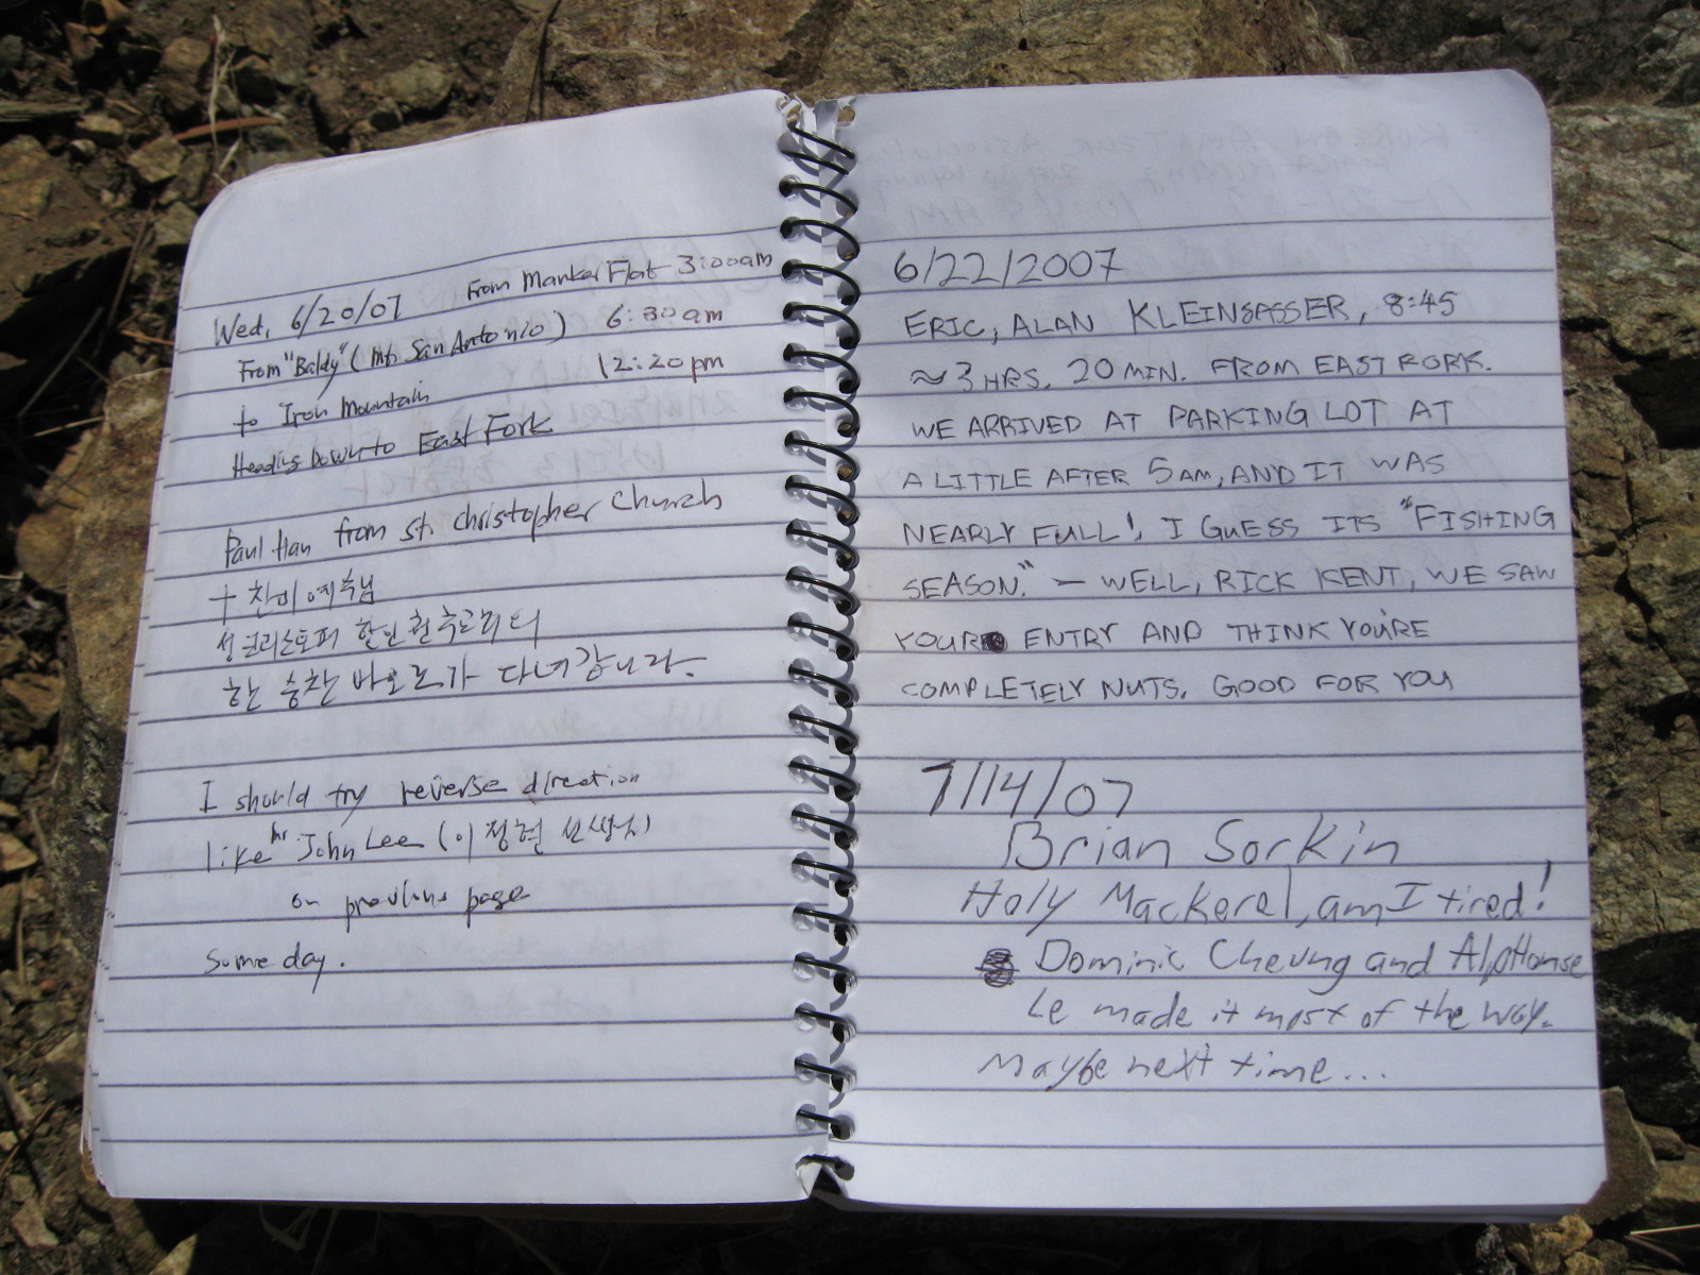 Wed, 6/20/07 From Manker Flat 3:00am
From "Baldy" (Mt. San Antonio) 6:30am
to Iron Mountain 12:20pm
Heading Down to East Fork
Paul Han from St. Christopher Church
+ 찬미 예수님
성 크리스토퍼 한인 천주교회의
한 승찬 바오로가 다녀갑니다.
I should try reverse direction
like Mr. John Lee (이 정현 선생님)
on previous page
some day.
6/22/2007
ERIC, ALAN KLEINSASSER, 8:45
≈ 3 HRS. 20 MIN. FROM EAST FORK.
WE ARRIVED AT PARKING LOT AT
A LITTLE AFTER 5 AM, AND IT WAS
NEARLY FULL! I GUESS ITS "FISHING
SEASON." — WELL, RICK KENT, WE SAW
YOUR ENTRY AND THINK YOU'RE
COMPLETELY NUTS. GOOD FOR YOU
7/14/07
Brian Sorkin
Holy Mackerel, am I tired!
Dominic Cheung and AlpHonse
Le made it most of the way.
Maybe next time...